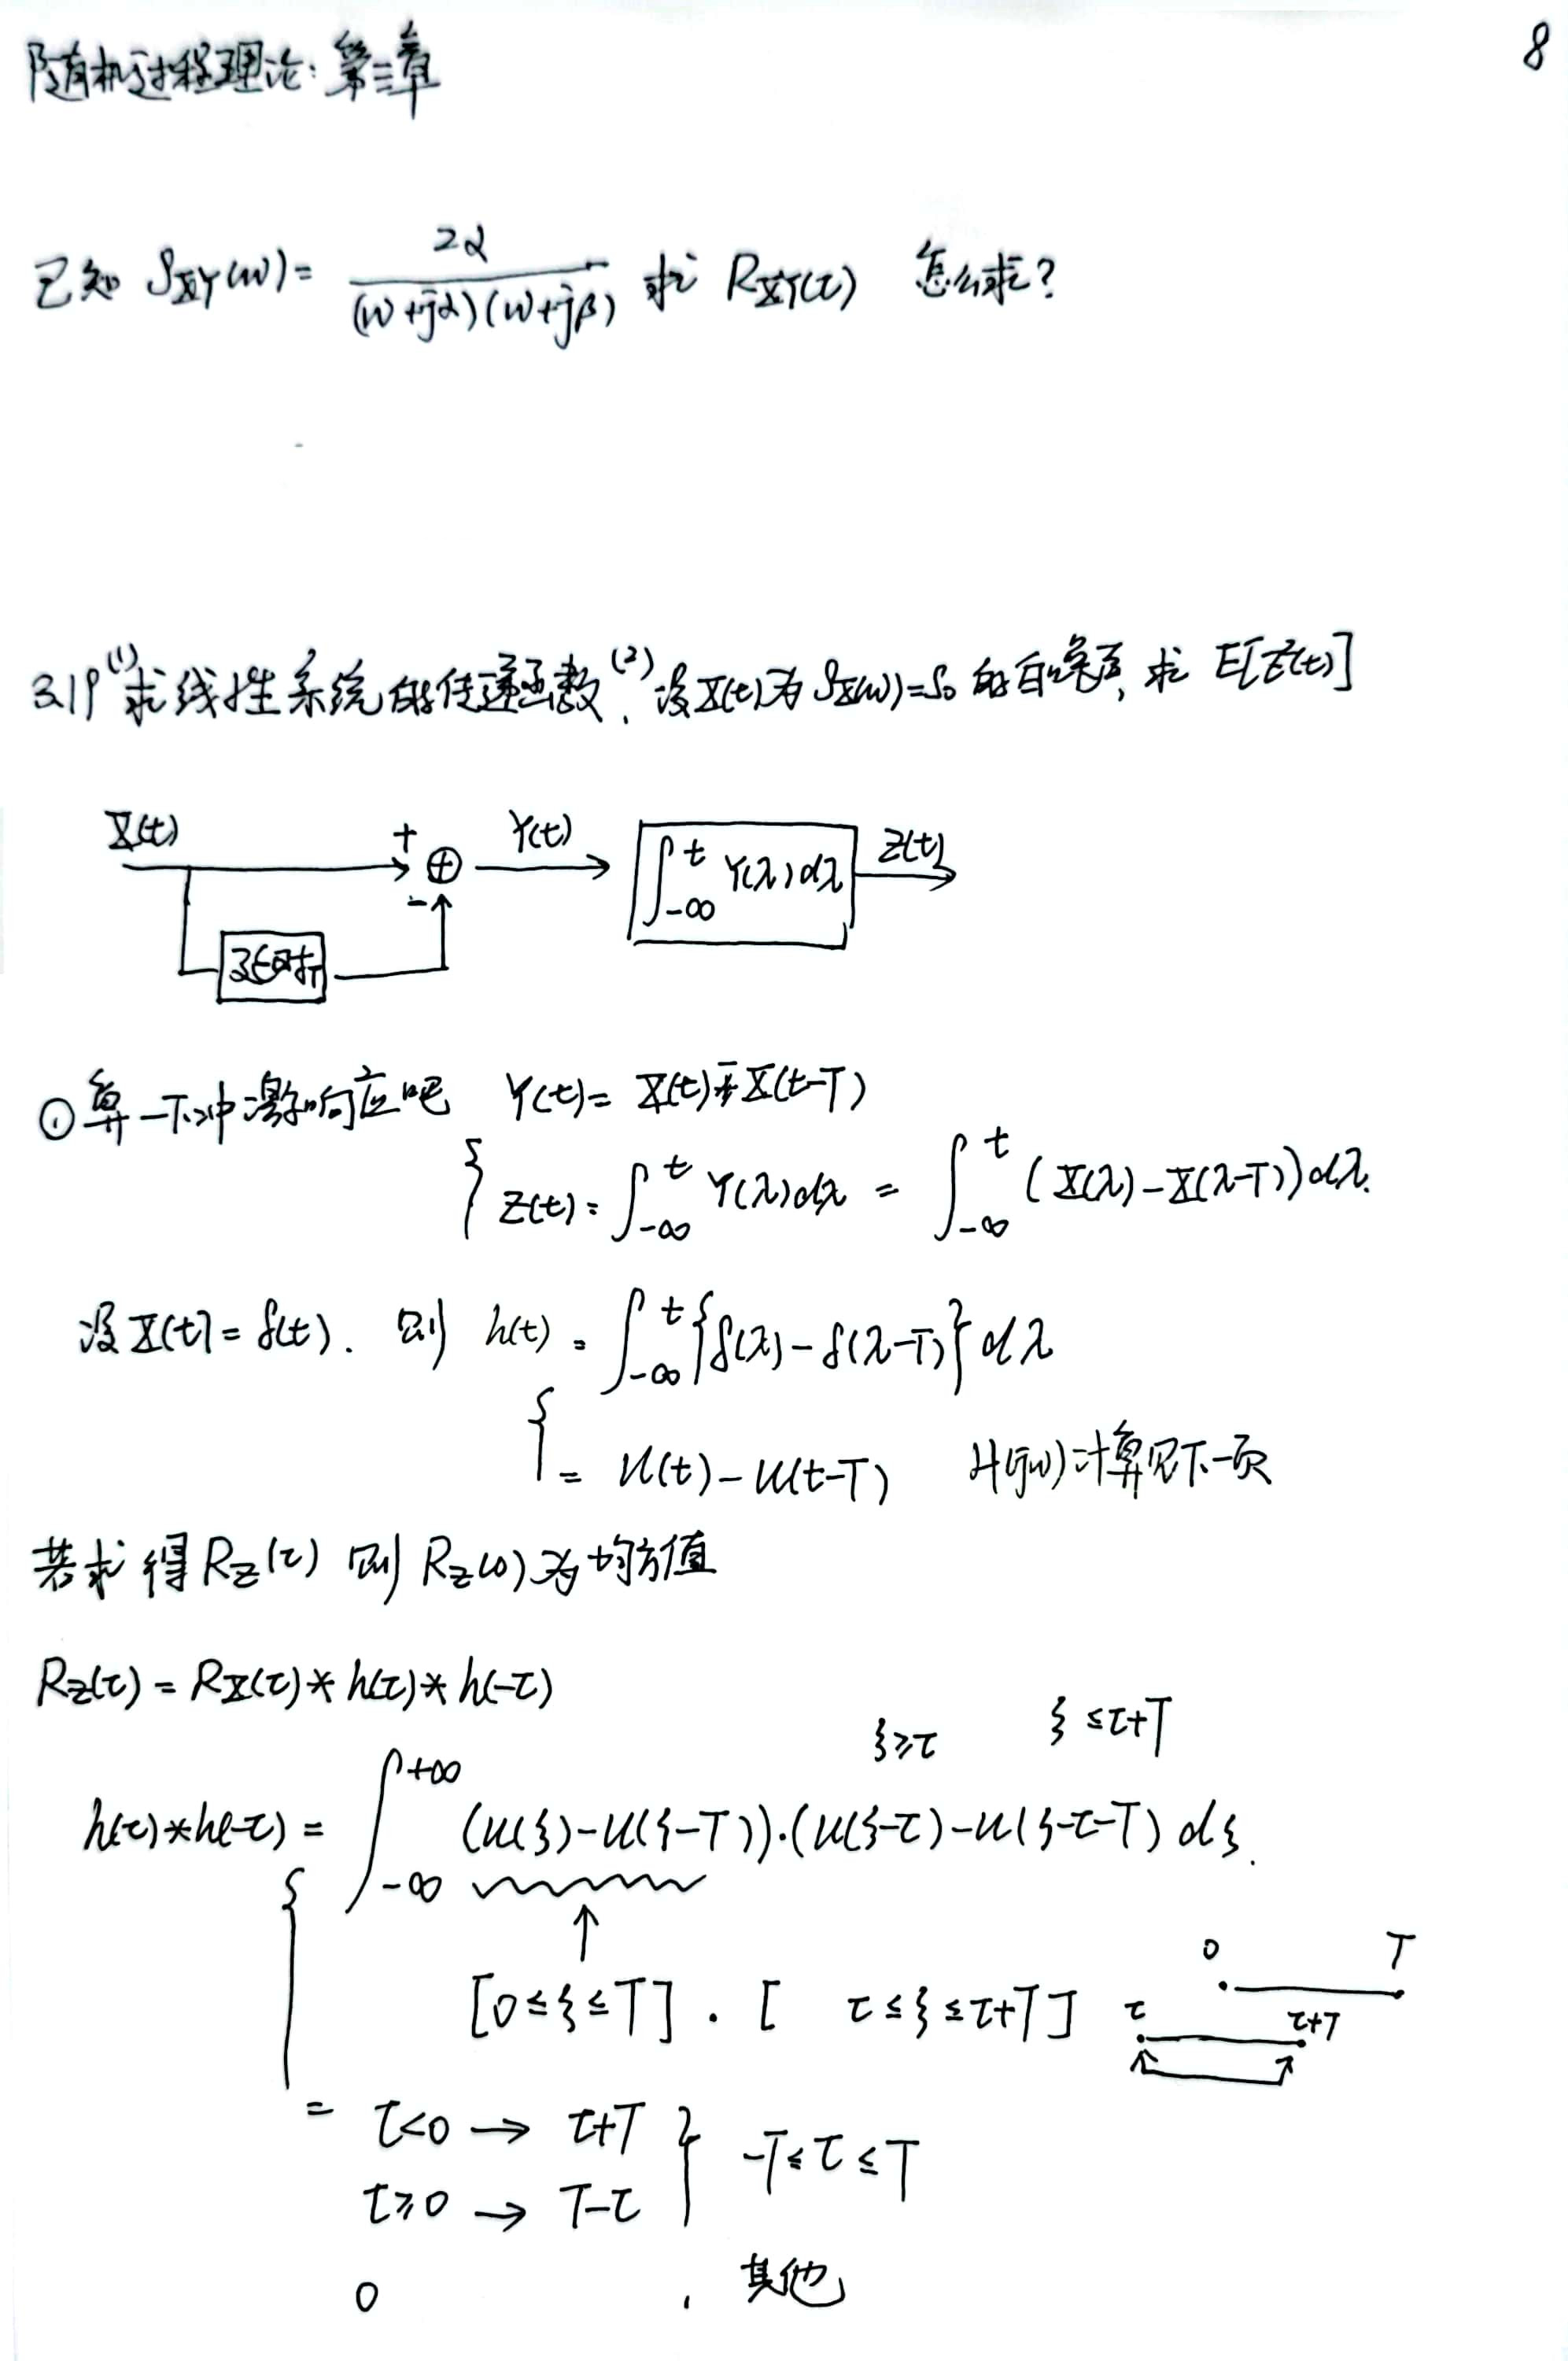 随机过程理论：第三章
8
已知 S_XY(ω) = 2α / (ω+jα)(ω+jβ) 求 R_XY(τ) 怎么求？
3.19 (1) 求线性系统的传递函数. (2) 设X(t)为 S_X(ω)=S₀ 的白噪声, 求 E[Z(t)]
X(t) + ⊕ Y(t) ∫_{-∞}^{t} Y(λ)dλ Z(t)
-
延时T
① 算一下冲激响应吧 Y(t) = X(t) - X(t-T)
Z(t) = ∫_{-∞}^{t} Y(λ)dλ = ∫_{-∞}^{t} (X(λ)-X(λ-T))dλ.
设X(t)=δ(t). 则 h(t) = ∫_{-∞}^{t} {δ(λ)-δ(λ-T)}dλ
= u(t)-u(t-T) H(jω)计算见下一页
若求得R_Z(τ) 则 R_Z(0)为均方值
R_Z(τ) = R_X(τ)*h(τ)*h(-τ)
ξ≥τ ξ≤τ+T
h(τ)*h(-τ) = ∫_{-∞}^{+∞} (u(ξ)-u(ξ-T))·(u(ξ-τ)-u(ξ-τ-T) dξ.
↑
[0≤ξ≤T] · [ τ≤ξ≤τ+T] 0 T
τ τ+T
= τ<0 → τ+T
τ≥0 → T-τ } -T≤τ≤T
0 , 其他